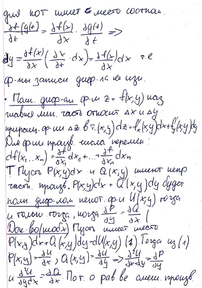 для кот имеет место соотнош.
∂f(g(t))/∂t = ∂f(x)/∂x · ∂g(t)/∂t ⇒
dy = ∂f(x)/∂x (∂x/∂t dx) = ∂f(x)/∂x dx т.е
ф-мы записи диф-ла не изм.
• Полн. диф-ом ф-и z = f(x,y) наз
главная лин. часть относит Δx и Δy
приращ. ф-ии Δz в т. (x,y) dz = f'x(x,y)dx + f'y(x,y)dy
Для ф-ии произв. числа перемен:
df(x₁...xₙ) = ∂f/∂x₁ dx₁ + ... + ∂f/∂xₙ dxₙ
T Пусть P(x,y)dx и Q(x,y) имеют непр
части произв. P(x,y)dx + Q(x,y)dy будет
полн диф-лом некот. ф-и U(x,y) тогда
и только тогда, когда ∂P/∂y = ∂Q/∂x
Док-во (необх) Пусть имеет место
P(x,y)dx + Q(x,y)dy = dU(x,y) (1) Тогда из (1)
P(x,y) = ∂U/∂x; Q(x,y) = ∂U/∂y ⇒
Пот. о рав-ве смеш. произв.